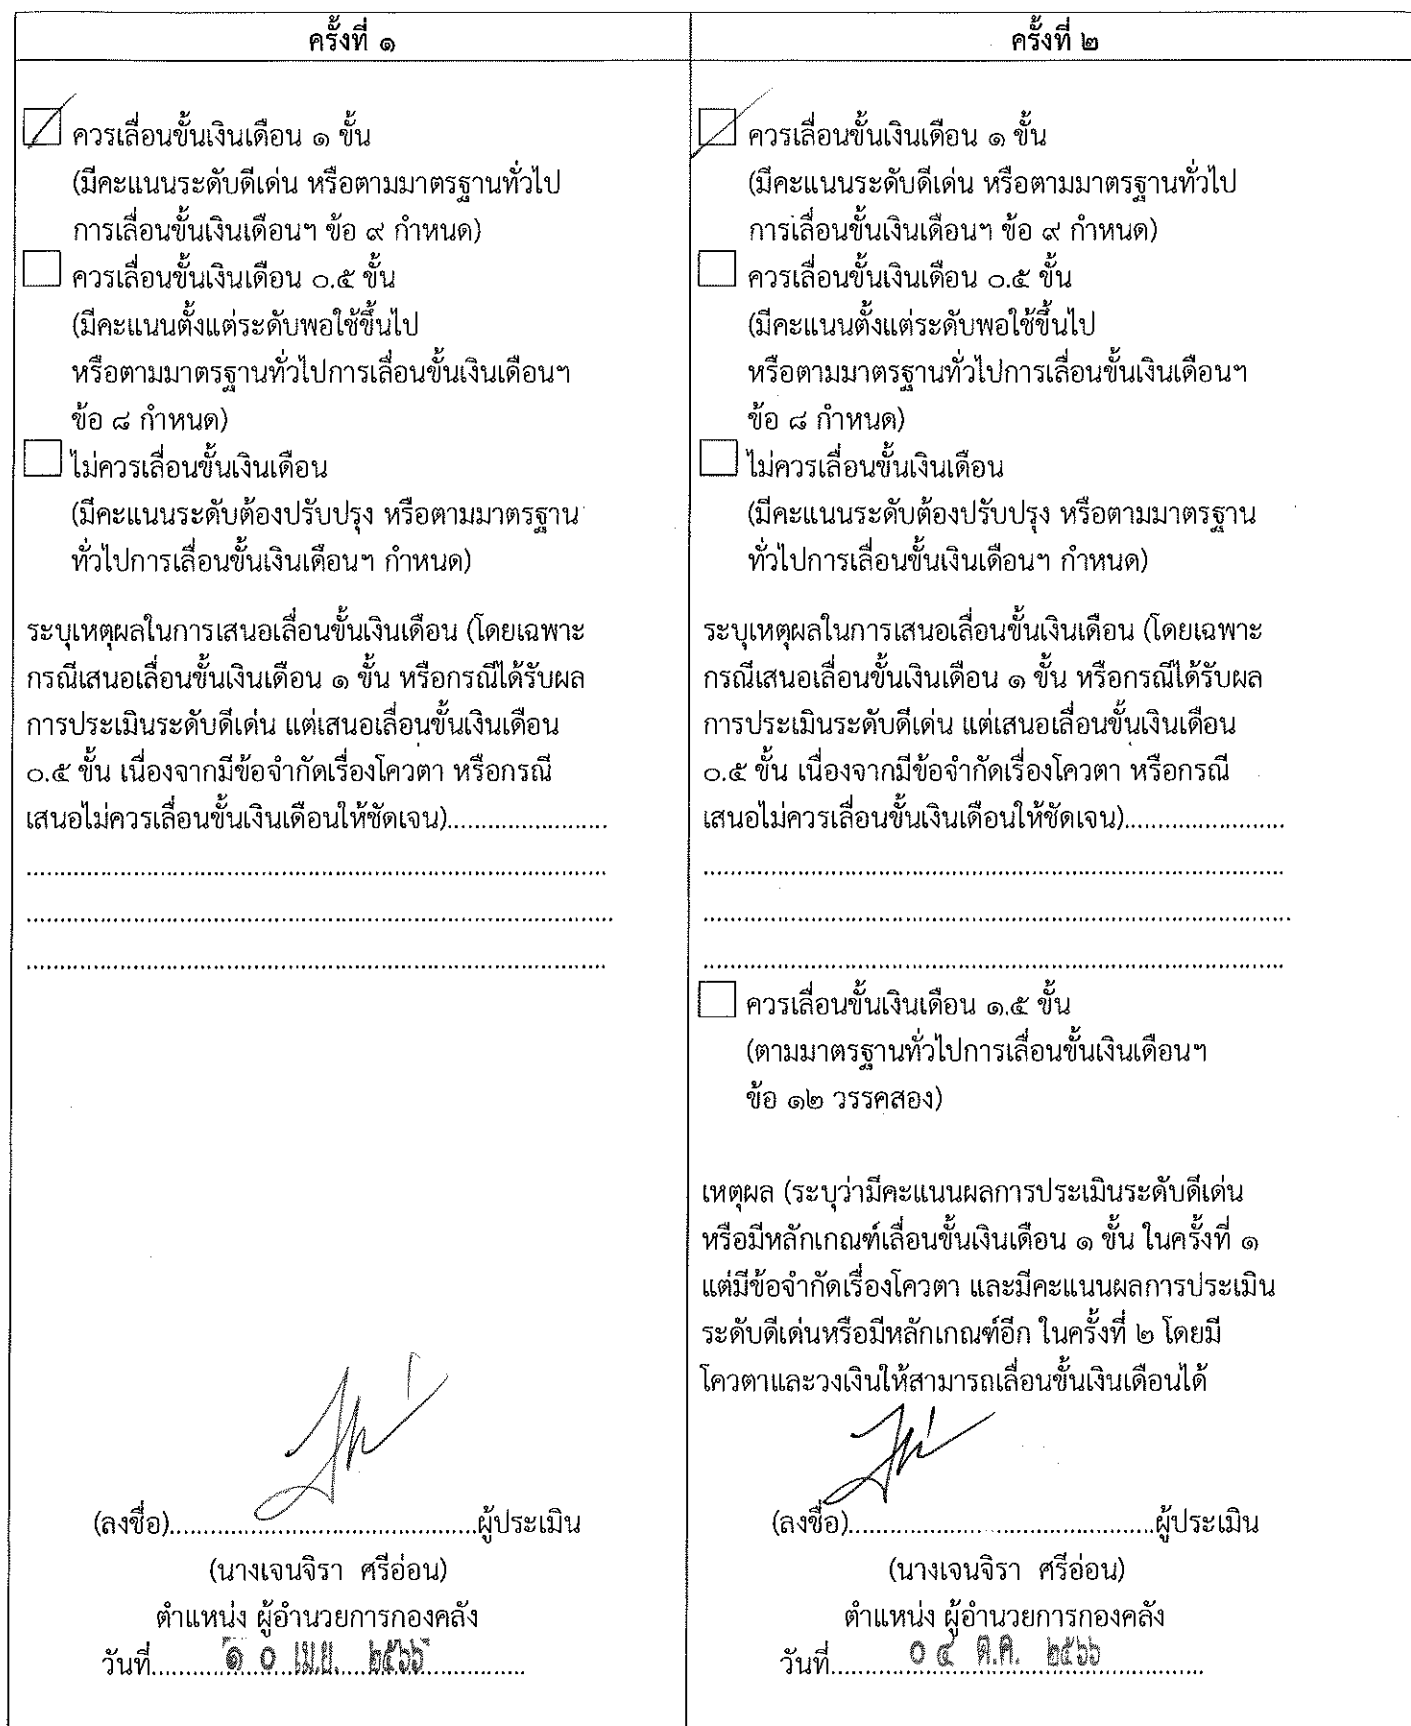 ครั้งที่ ๑
ควรเลื่อนขั้นเงินเดือน ๑ ขั้น
(มีคะแนนระดับดีเด่น หรือตามมาตรฐานทั่วไป
การเลื่อนขั้นเงินเดือนฯ ข้อ ๙ กำหนด)
ควรเลื่อนขั้นเงินเดือน ๐.๕ ขั้น
(มีคะแนนตั้งแต่ระดับพอใช้ขึ้นไป
หรือตามมาตรฐานทั่วไปการเลื่อนขั้นเงินเดือนฯ
ข้อ ๘ กำหนด)
ไม่ควรเลื่อนขั้นเงินเดือน
(มีคะแนนระดับต้องปรับปรุง หรือตามมาตรฐาน
ทั่วไปการเลื่อนขั้นเงินเดือนฯ กำหนด)
ระบุเหตุผลในการเสนอเลื่อนขั้นเงินเดือน (โดยเฉพาะ
กรณีเสนอเลื่อนขั้นเงินเดือน ๑ ขั้น หรือกรณีได้รับผล
การประเมินระดับดีเด่น แต่เสนอเลื่อนขั้นเงินเดือน
๐.๕ ขั้น เนื่องจากมีข้อจำกัดเรื่องโควตา หรือกรณี
เสนอไม่ควรเลื่อนขั้นเงินเดือนให้ชัดเจน)........................
(ลงชื่อ)..............................................ผู้ประเมิน
(นางเจนจิรา ศรีอ่อน)
ตำแหน่ง ผู้อำนวยการกองคลัง
วันที่ ๑ ๐ เม.ย. ๒๕๖๖
ครั้งที่ ๒
ควรเลื่อนขั้นเงินเดือน ๑ ขั้น
(มีคะแนนระดับดีเด่น หรือตามมาตรฐานทั่วไป
การเลื่อนขั้นเงินเดือนฯ ข้อ ๙ กำหนด)
ควรเลื่อนขั้นเงินเดือน ๐.๕ ขั้น
(มีคะแนนตั้งแต่ระดับพอใช้ขึ้นไป
หรือตามมาตรฐานทั่วไปการเลื่อนขั้นเงินเดือนฯ
ข้อ ๘ กำหนด)
ไม่ควรเลื่อนขั้นเงินเดือน
(มีคะแนนระดับต้องปรับปรุง หรือตามมาตรฐาน
ทั่วไปการเลื่อนขั้นเงินเดือนฯ กำหนด)
ระบุเหตุผลในการเสนอเลื่อนขั้นเงินเดือน (โดยเฉพาะ
กรณีเสนอเลื่อนขั้นเงินเดือน ๑ ขั้น หรือกรณีได้รับผล
การประเมินระดับดีเด่น แต่เสนอเลื่อนขั้นเงินเดือน
๐.๕ ขั้น เนื่องจากมีข้อจำกัดเรื่องโควตา หรือกรณี
เสนอไม่ควรเลื่อนขั้นเงินเดือนให้ชัดเจน)........................
ควรเลื่อนขั้นเงินเดือน ๑.๕ ขั้น
(ตามมาตรฐานทั่วไปการเลื่อนขั้นเงินเดือนฯ
ข้อ ๑๒ วรรคสอง)
เหตุผล (ระบุว่ามีคะแนนผลการประเมินระดับดีเด่น
หรือมีหลักเกณฑ์เลื่อนขั้นเงินเดือน ๑ ขั้น ในครั้งที่ ๑
แต่มีข้อจำกัดเรื่องโควตา และมีคะแนนผลการประเมิน
ระดับดีเด่นหรือมีหลักเกณฑ์อีก ในครั้งที่ ๒ โดยมี
โควตาและวงเงินให้สามารถเลื่อนขั้นเงินเดือนได้
(ลงชื่อ)..............................................ผู้ประเมิน
(นางเจนจิรา ศรีอ่อน)
ตำแหน่ง ผู้อำนวยการกองคลัง
วันที่ ๐ ๔ ต.ค. ๒๕๖๖